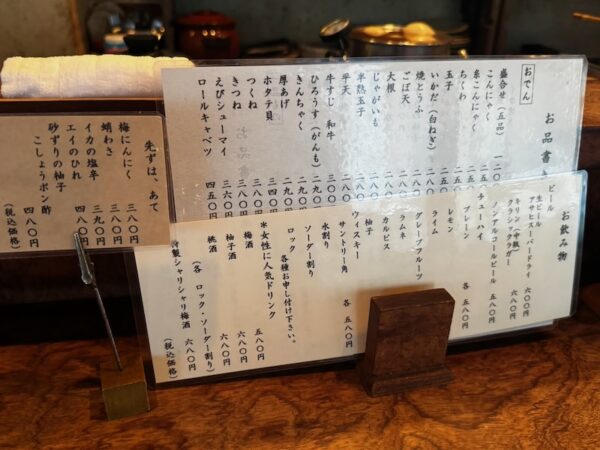 お品書き
おでん
盛合せ（五品） 一二〇
こんにゃく
糸こんにゃく
ちくわ
玉子
いかだ（白ねぎ）
焼とうふ
ごぼ天
大根
じゃがいも
半熟玉子
平天
牛すじ 和牛
ひろうす（がんも）
きんちゃく
厚あげ
ホタテ貝
つくね
きつね
えびシューマイ
ロールキャベツ 四五〇円
先ずは、あて
梅にんにく 三八〇円
蛸わさ 三八〇円
イカの塩辛 三九〇円
エイのひれ 四八〇円
砂ずりの柚子
こしょうポン酢 四八〇円
（税込価格）
お飲み物
ビール
生ビール
アサヒスーパードライ 六〇〇円
キリン（中瓶）
クラシックラガー 六五〇円
ノンアルコールビール 五〇〇円
チューハイ
プレーン 各 五八〇円
レモン
ライム
グレープフルーツ
ラムネ
カルピス
柚子
ウィスキー
サントリー角 各 五八〇円
水割り
ソーダー割り
ロック 各種お申し付け下さい。
＊女性に人気ドリンク
梅酒 五八〇円
柚子酒 六八〇円
桃酒 六八〇円
（各 ロック・ソーダー割り）
特製シャリシャリ梅酒 六八〇円
（税込価格）